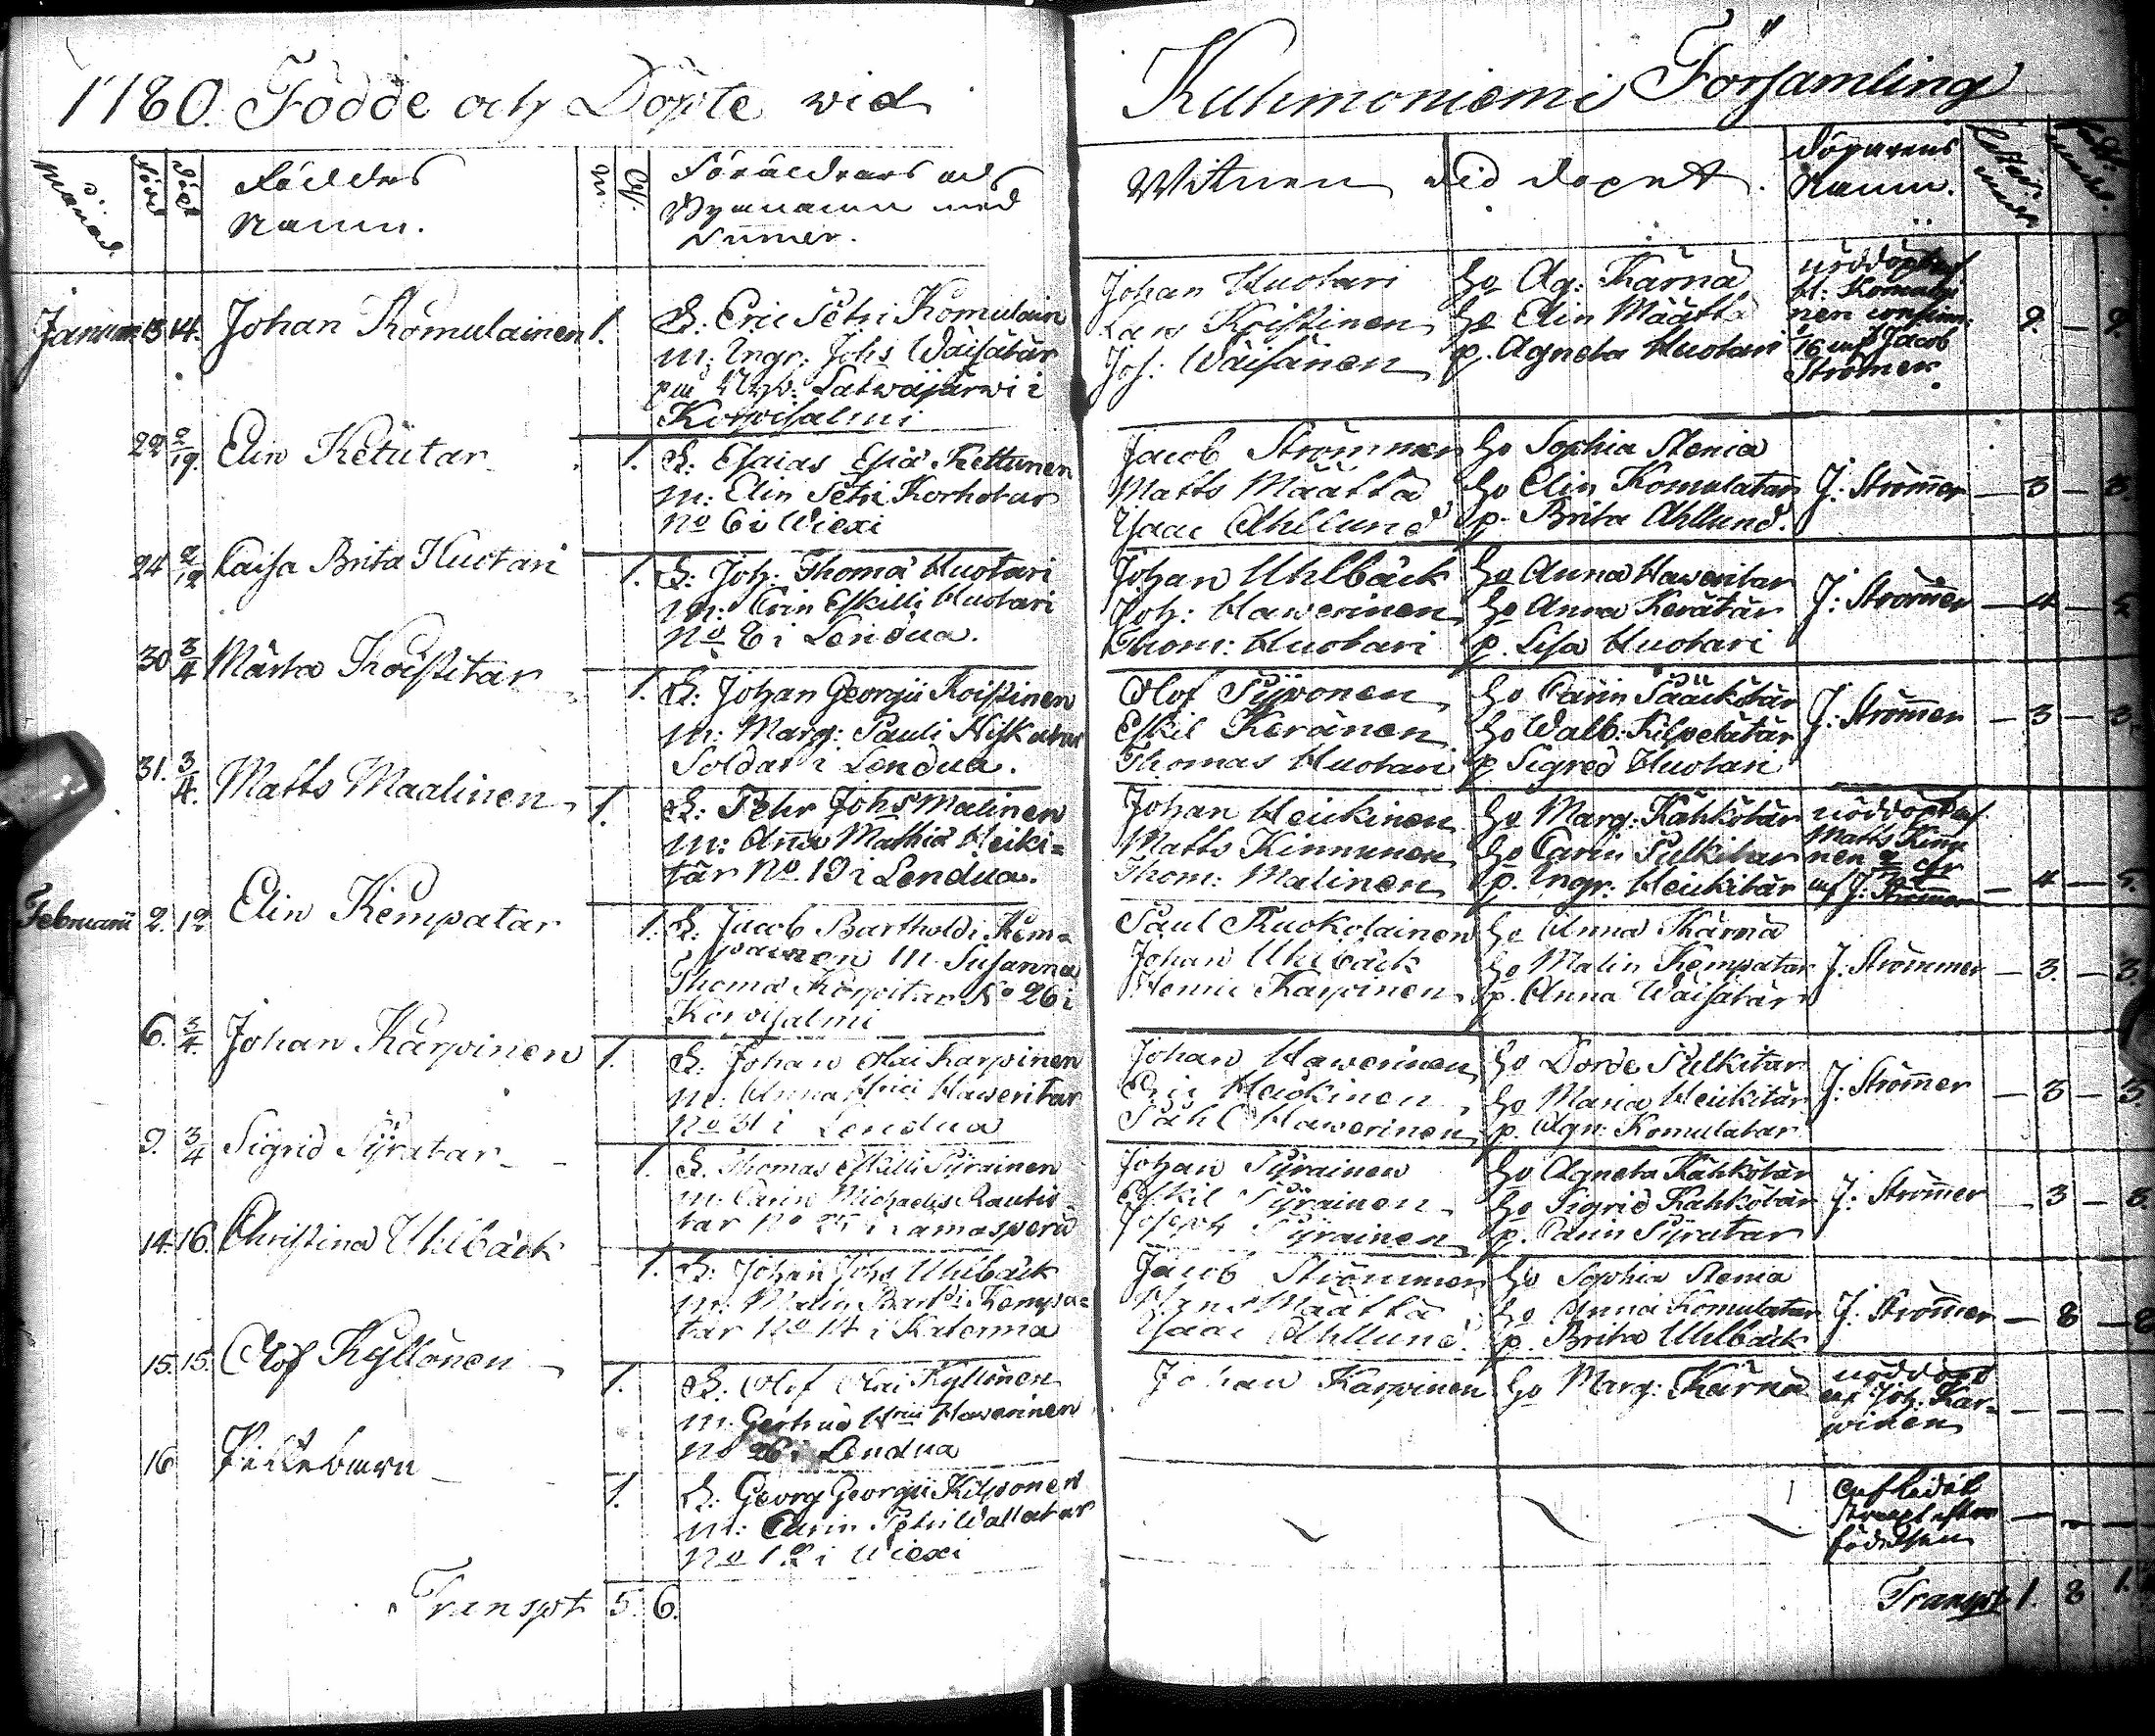 1780. Födde och Döpte wid
Kuhmoniemi Församling
Månad
född
döpt
Föddes
Namn.
Föräldrars och
Bynamn med
Numer.
Witnen wid dopet.
Döparens
Namn.
Januar. 13 14. Johan Komulainen 1.
B: Eric Petri Komulain
M: Ingr: Johs Wäisätär
Korpisalmi
Johan Huotari
Lars Koistinen
Joh: Wäisänen
Ho Ag: Kärnä
Ho Elin Määttä
p. Agneta Huotari
nöddöpt af
nen confirm:
16 af Jacob
Strömer
9. — 9.
22 2/19. Elin Ketutar 1.
B: Esaias Esiæ Kettunen
M: Elin Petri Korhotar
No 6 i Wiexi
Jacob Strömmer
Matts Määttä
Isaac Ahllund
Ho Sophia Stenia
Ho Elin Komulatar
p. Brita Ahllund.
J: Strömer — 3 — 3.
24 2/12 Caisa Brita Huotari 1.
B: Joh: Thomæ Huotari
M: Carin Eskilli Huotari
No 8 i Lendua.
Johan Uhlbäck
Joh: Hawerinen
Thom: Huotari
Ho Anna Haweritar
Ho Anna Kerätär
p. Lisa Huotari
J: Strömer — 4 —
30 3/4 Märta Koistitar 1.
B: Johan Georgii Koistinen
M: Marg: Pauli Niskatar
Soldat i Lendua.
Olof Pijronen
Eskil Keränen
Thomas Huotari
Ho Carin Pääckötär
Ho Walb: Kilpelätär
p Sigred Huotari
J: Strömer — 3 — 3.
31. 3/4. Matts Maalinen 1.
B: Pehr Johs Malinen
M: Anna Mathiæ Heiki=
tär No. 19 i Lendua.
Johan Heickinen
Matts Kinnunen
Thom: Malinen
Ho Marg: Kähkötär
Ho Carin Pulkitar
p. Ingr: Heickitär
nöddöpt af
Matts Kinu
nen
af J: Strömer — 4 — 5.
Februarii 2. 12 Elin Kempatar 1.
B: Jacob Bartholdi Kem=
painen M: Susanna
Thomæ Korpitar No 26 i
Korpisalmi
Paul Ruokolainen
Johan Uhlbäck
Henric Karpinen
Ho Anna Kärnä
Ho Malin Kempatar
p. Anna Wäisätär
J: Strömmer — 3. — 3.
6. 3/4. Johan Karpinen 1.
B: Johan Olai Karpinen
M: Anna Hrici Haweritar
No 31 i Lendua
Johan Hawerinen
Eric Heickinen
Påhl Hawerinen
Ho Dorde Pulkitar
Ho Maria Heickitär
p. Agn: Komulatar
J: Strömer — 3 — 3.
9. 3/4 Sigrid Pijratar 1.
B. Thomas Eskilli Pyrainen
M: Carin Michaelis Rautio
tar No 25 i Lamasperä
Johan Pyrainen
Eskil Pyrainen
Joseph Pyrainen
Ho Agneta Kähkötär
Ho Sigrid Kähkötär
p. Carin Pyratar
J: Strömer — 3 — 3.
14. 16. Christina Uhlbäck 1.
B: Johan Johs Uhlbäck
M: Malin Barth: Kempa=
tar No 14 i Katerma
Jacob Strömmer
Hans Määttä
Isaac Ahllund.
Ho Sophia Stenia
Ho Anna Komulatar
p. Brita Uhlbäck
J: Strömer — 8 — 8
15. 15. Olof Kyllönen 1.
B: Olof Olai Kyllönen
M: Gertrud Hrici Hawerinen
No 26 i Lendua
Johan Karpinen
Ho Marg: Kärnä
nöddöpt
af Joh: Kar=
winen
— — —
16 Pilltebarn 1.
B: Georg Georgii Kilponen
M: Carin Petri Wallatar
No 12 i Wiexi
aflidit
strax efter
födelsen
— — —
Transpt 5. 6.
Transpt 1. 8 1.